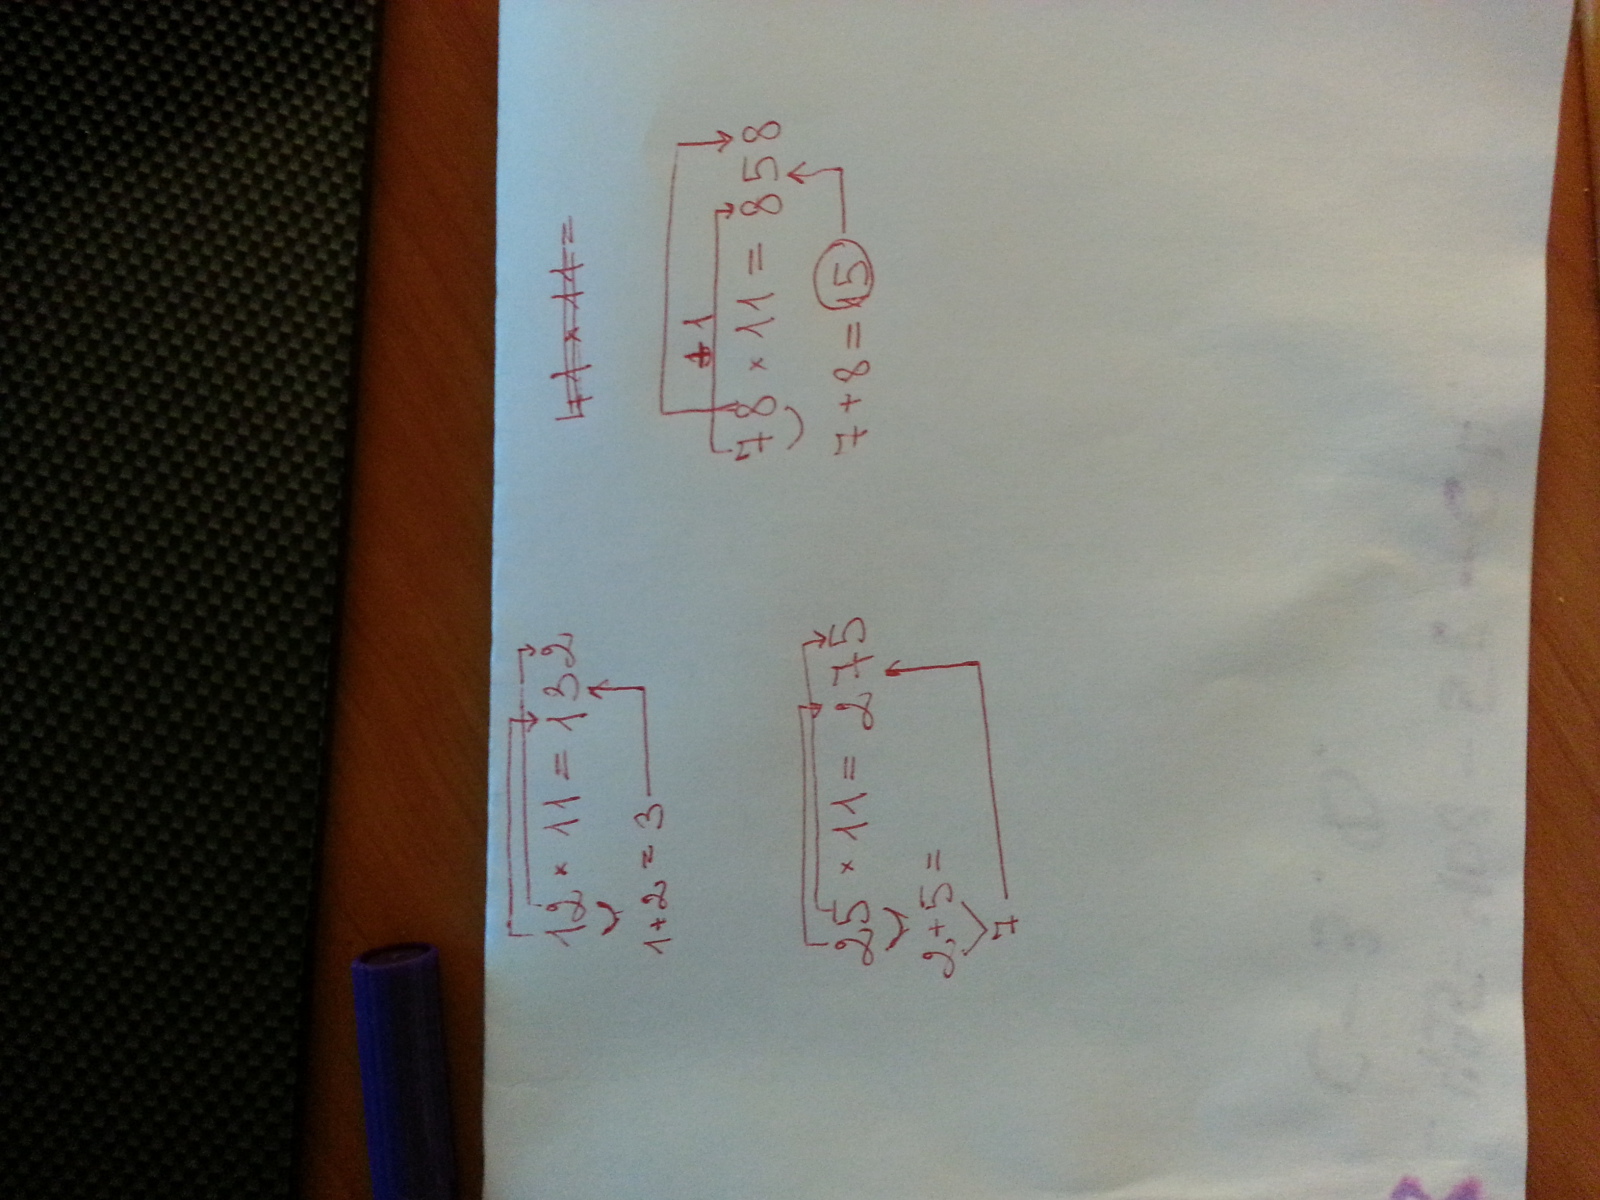 12 × 11 = 132
1+2 = 3
25 × 11 = 275
2+5 =
7
71 × 11 =
+1
78 × 11 = 858
7+8=15